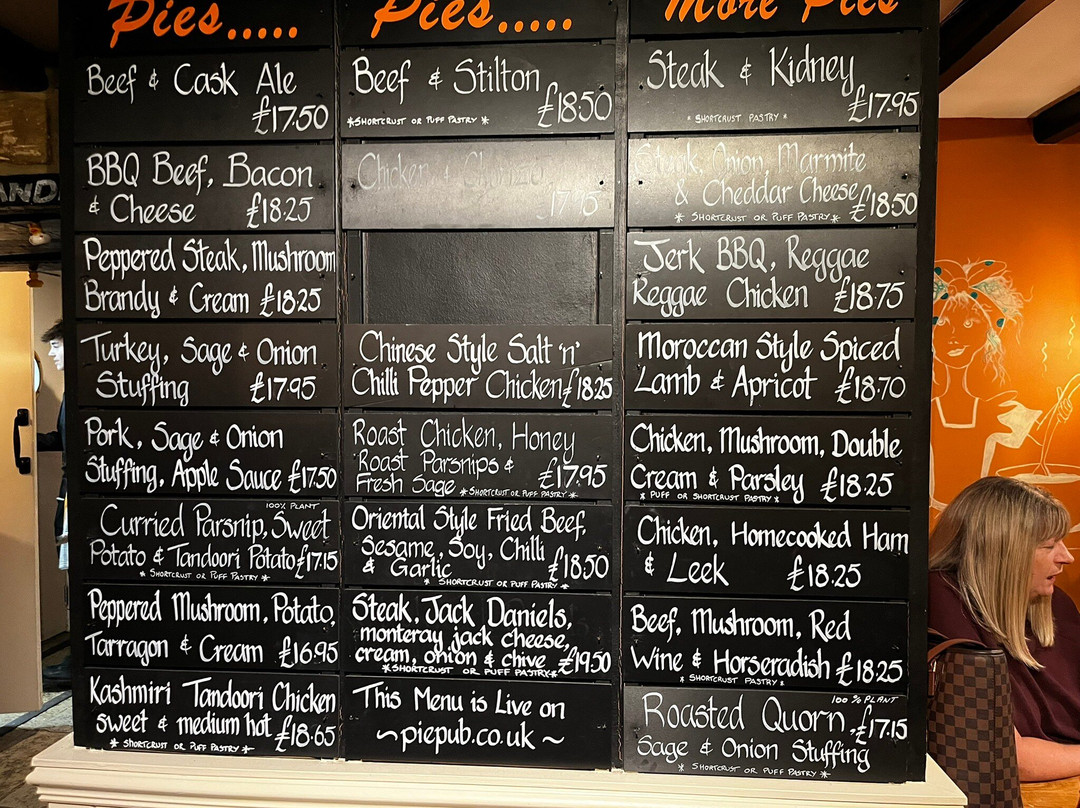 Pies.....
Beef & Cask Ale
£17.50
BBQ Beef, Bacon
& Cheese £18.25
Peppered Steak, Mushroom
Brandy & Cream £18.25
Turkey, Sage & Onion
Stuffing £17.95
Pork, Sage & Onion
Stuffing, Apple Sauce £17.50
100% PLANT
Curried Parsnip, Sweet
Potato & Tandoori Potato £17.15
* SHORTCRUST OR PUFF PASTRY *
Peppered Mushroom, Potato,
Tarragon & Cream £16.95
Kashmiri Tandoori Chicken
sweet & medium hot £18.65
* SHORTCRUST OR PUFF PASTRY *
Pies.....
Beef & Stilton
£18.50
*SHORTCRUST OR PUFF PASTRY *
Chicken & Chorizo
17.95
Chinese Style Salt 'n'
Chilli Pepper Chicken £18.25
Roast Chicken, Honey
Roast Parsnips &
£17.95
Fresh Sage *SHORTCRUST OR PUFF PASTRY *
Oriental Style Fried Beef,
Sesame, Soy, Chilli
& Garlic £18.50
* SHORTCRUST OR PUFF PASTRY *
Steak, Jack Daniels,
monteray jack cheese,
cream, onion & chive £19.50
*SHORTCRUST OR PUFF PASTRY*
This Menu is Live on
~piepub.co.uk ~
More Pies
Steak & Kidney
£17.95
* SHORTCRUST PASTRY *
Steak, Onion, Marmite
& Cheddar Cheese £18.50
* SHORTCRUST OR PUFF PASTRY *
Jerk BBQ, Reggae
Reggae Chicken £18.75
Moroccan Style Spiced
Lamb & Apricot £18.70
Chicken, Mushroom, Double
Cream & Parsley £18.25
* PUFF OR SHORTCRUST PASTRY *
Chicken, Homecooked Ham
& Leek £18.25
Beef, Mushroom, Red
Wine & Horseradish £18.25
* SHORTCRUST PASTRY *
100 % PLANT
Roasted Quorn, £17.15
Sage & Onion Stuffing
* SHORTCRUST OR PUFF PASTRY *